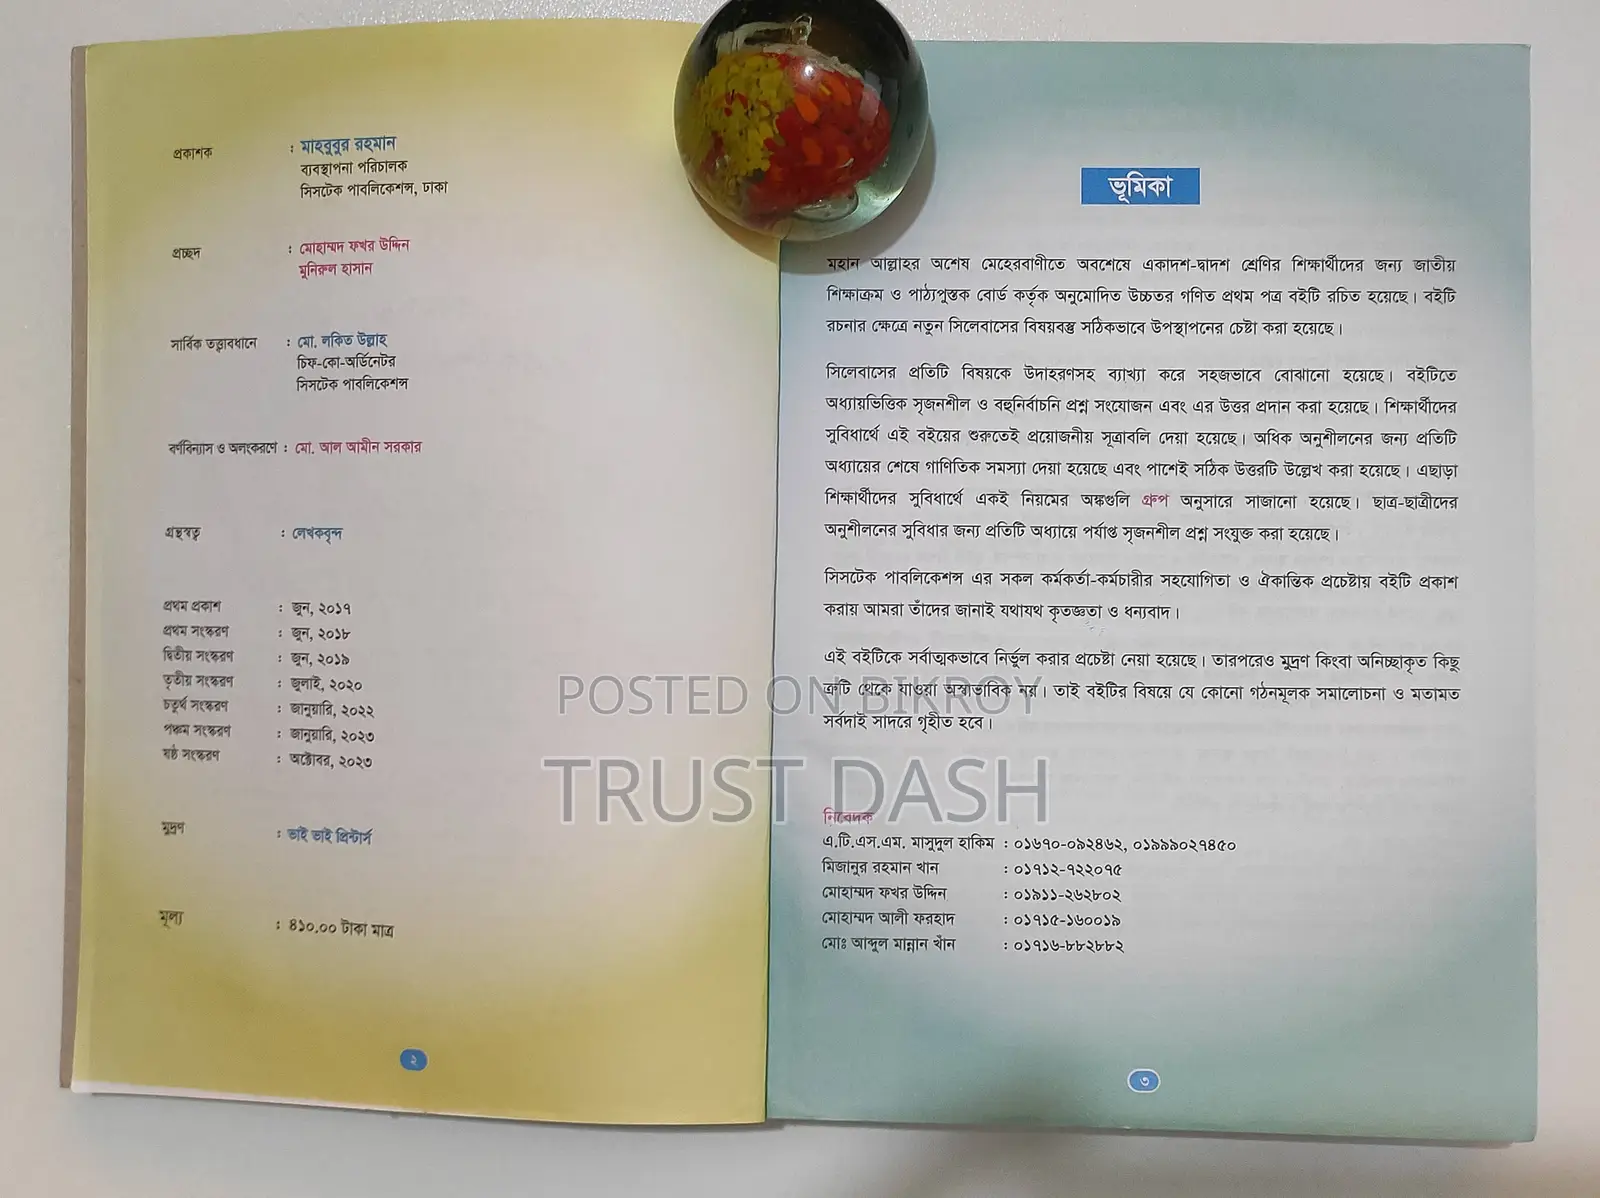 প্রকাশক : মাহবুবুর রহমান
ব্যবস্থাপনা পরিচালক
সিসটেক পাবলিকেশন্স, ঢাকা
প্রচ্ছদ : মোহাম্মদ ফখর উদ্দিন
মুনিরুল হাসান
সার্বিক তত্ত্বাবধানে : মো. লকিত উল্লাহ
চিফ-কো-অর্ডিনেটর
সিসটেক পাবলিকেশন্স
বর্ণবিন্যাস ও অলংকরণে : মো. আল আমীন সরকার
গ্রন্থস্বত্ব : লেখকবৃন্দ
প্রথম প্রকাশ : জুন, ২০১৭
প্রথম সংস্করণ : জুন, ২০১৮
দ্বিতীয় সংস্করণ : জুন, ২০১৯
তৃতীয় সংস্করণ : জুলাই, ২০২০
চতুর্থ সংস্করণ : জানুয়ারি, ২০২২
পঞ্চম সংস্করণ : জানুয়ারি, ২০২৩
ষষ্ঠ সংস্করণ : অক্টোবর, ২০২৩
মুদ্রণ : ভাই ভাই প্রিন্টার্স
মূল্য : ৪১০.০০ টাকা মাত্র
২
ভূমিকা
মহান আল্লাহর অশেষ মেহেরবাণীতে অবশেষে একাদশ-দ্বাদশ শ্রেণির শিক্ষার্থীদের জন্য জাতীয়
শিক্ষাক্রম ও পাঠ্যপুস্তক বোর্ড কর্তৃক অনুমোদিত উচ্চতর গণিত প্রথম পত্র বইটি রচিত হয়েছে। বইটি
রচনার ক্ষেত্রে নতুন সিলেবাসের বিষয়বস্তু সঠিকভাবে উপস্থাপনের চেষ্টা করা হয়েছে।
সিলেবাসের প্রতিটি বিষয়কে উদাহরণসহ ব্যাখ্যা করে সহজভাবে বোঝানো হয়েছে। বইটিতে
অধ্যায়ভিত্তিক সৃজনশীল ও বহুনির্বাচনি প্রশ্ন সংযোজন এবং এর উত্তর প্রদান করা হয়েছে। শিক্ষার্থীদের
সুবিধার্থে এই বইয়ের শুরুতেই প্রয়োজনীয় সূত্রাবলি দেয়া হয়েছে। অধিক অনুশীলনের জন্য প্রতিটি
অধ্যায়ের শেষে গাণিতিক সমস্যা দেয়া হয়েছে এবং পাশেই সঠিক উত্তরটি উল্লেখ করা হয়েছে। এছাড়া
শিক্ষার্থীদের সুবিধার্থে একই নিয়মের অঙ্কগুলি গ্রুপ অনুসারে সাজানো হয়েছে। ছাত্র-ছাত্রীদের
অনুশীলনের সুবিধার জন্য প্রতিটি অধ্যায়ে পর্যাপ্ত সৃজনশীল প্রশ্ন সংযুক্ত করা হয়েছে।
সিসটেক পাবলিকেশন্স এর সকল কর্মকর্তা-কর্মচারীর সহযোগিতা ও ঐকান্তিক প্রচেষ্টায় বইটি প্রকাশ
করায় আমরা তাঁদের জানাই যথাযথ কৃতজ্ঞতা ও ধন্যবাদ।
এই বইটিকে সর্বাত্মকভাবে নির্ভুল করার প্রচেষ্টা নেয়া হয়েছে। তারপরেও মুদ্রণ কিংবা অনিচ্ছাকৃত কিছু
ত্রুটি থেকে যাওয়া অস্বাভাবিক নয়। তাই বইটির বিষয়ে যে কোনো গঠনমূলক সমালোচনা ও মতামত
সর্বদাই সাদরে গৃহীত হবে।
নিবেদক
এ.টি.এস.এম. মাসুদুল হাকিম : ০১৬৭০-০৯২৪৬২, ০১৯৯৯০২৭৪৫০
মিজানুর রহমান খান : ০১৭১২-৭২২০৭৫
মোহাম্মদ ফখর উদ্দিন : ০১৯১১-২৬২৮০২
মোহাম্মদ আলী ফরহাদ : ০১৭১৫-১৬০০১৯
মোঃ আব্দুল মান্নান খাঁন : ০১৭১৬-৮৮২৮৮২
৩
POSTED ON BIKROY
TRUST DASH